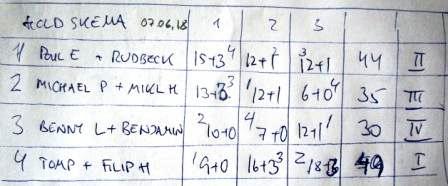 HOLD SKEMA 07.06.18 1 2 3
1 POUL E + RUDBECK 15+3⁴ 12+1² ³12+1 44 II
2 MICHAEL P + MIKL H 13+3³ ¹12+1 6+0⁴ 35 III
3 BENNY L + BENJAMIN ²10+0 ⁴7+0 12+1¹ 30 IV
4 TOM P + FILIP H ¹9+0 16+3³ ²18+3 49 I